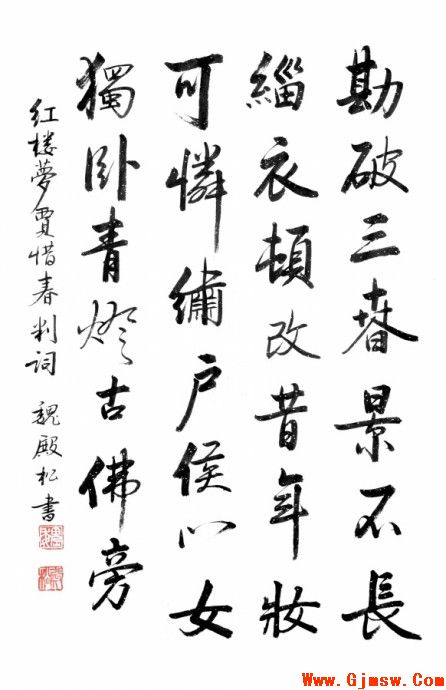 勘破三春景不長
緇衣頓改昔年妝
可憐繡户侯门女
獨卧青燈古佛旁
红楼夢賈惜春判詞 魏殿松書
Www.Gjmsw.Com